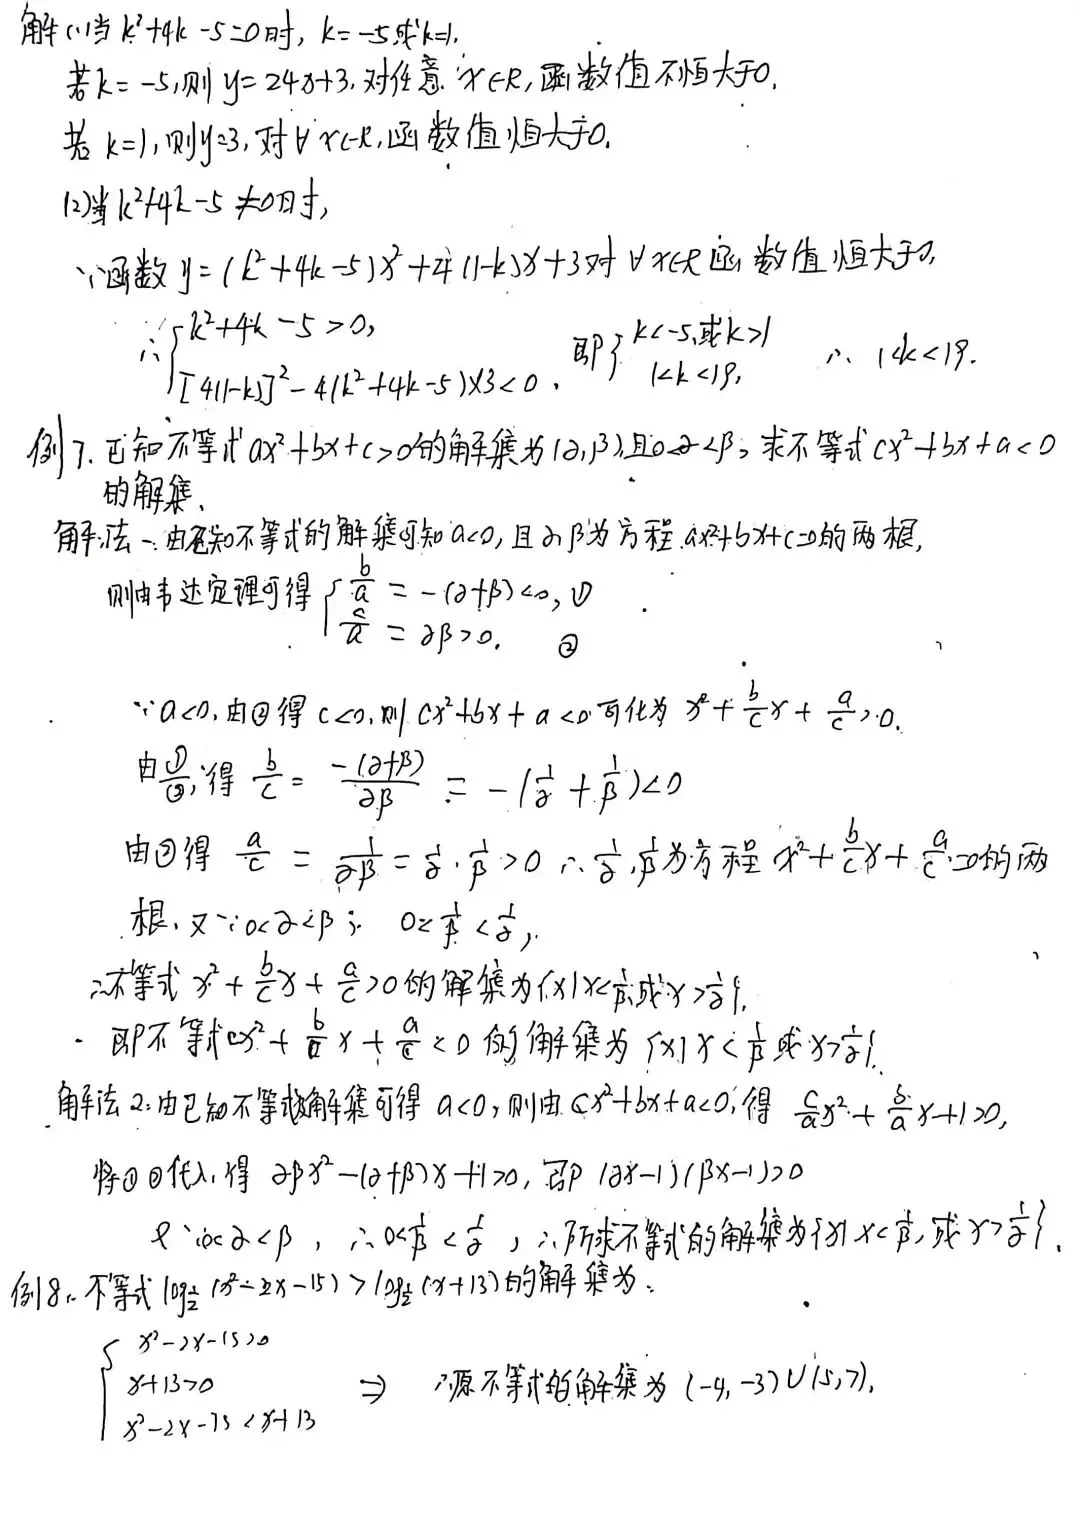 解:(1)当k²+4k-5=0时, k=-5或k=1.
若k=-5,则y=24x+3,对任意x∈R,函数值不恒大于0.
若k=1,则y=3,对∀x∈R,函数值恒大于0.
(2)当k²+4k-5≠0时,
∵函数y=(k²+4k-5)x²+4(1-k)x+3对∀x∈R函数值恒大于0,
∴{k²+4k-5>0, [4(1-k)]²-4(k²+4k-5)×3<0, 即{k<-5,或k>1 1<k<19, ∴1<k<19.
例7.已知不等式ax²+bx+c>0的解集为(α,β),且0<α<β,求不等式cx²+bx+a<0
的解集.
解法一:由已知不等式的解集可知a<0,且α,β为方程ax²+bx+c=0的两根,
则由韦达定理可得{b/a=-(α+β)<0,① c/a=αβ>0. ②
∵a<0,由②得c<0,则cx²+bx+a<0可化为x²+b/c x+a/c>0.
由①/②,得 b/c=-(α+β)/αβ=-(1/α+1/β)<0
由②得 a/c=1/αβ=1/α·1/β>0 ∴1/α,1/β为方程x²+b/c x+a/c=0的两
根,又∵0<α<β ∴ 0<1/β<1/α,
∴不等式x²+b/c x+a/c>0的解集为{x|x<1/β或x>1/α},
即不等式cx²+b/a x+a/c<0的解集为{x|x<1/β或x>1/α}.
解法2:由已知不等式解集可得a<0,则由cx²+bx+a<0,得 c/a x²+b/a x+1>0,
将①②代入,得 αβx²-(α+β)x+1>0,即(αx-1)(βx-1)>0
又∵0<α<β, ∴0<1/β<1/α, ∴所求不等式的解集为{x|x<1/β,或x>1/α}.
例8.不等式log½(x²-2x-15)>log½(x+13)的解集为:
{x²-2x-15>0
x+13>0 ⇒ ∴原不等式的解集为(-4,-3)∪(5,7),
x²-2x-15<x+13